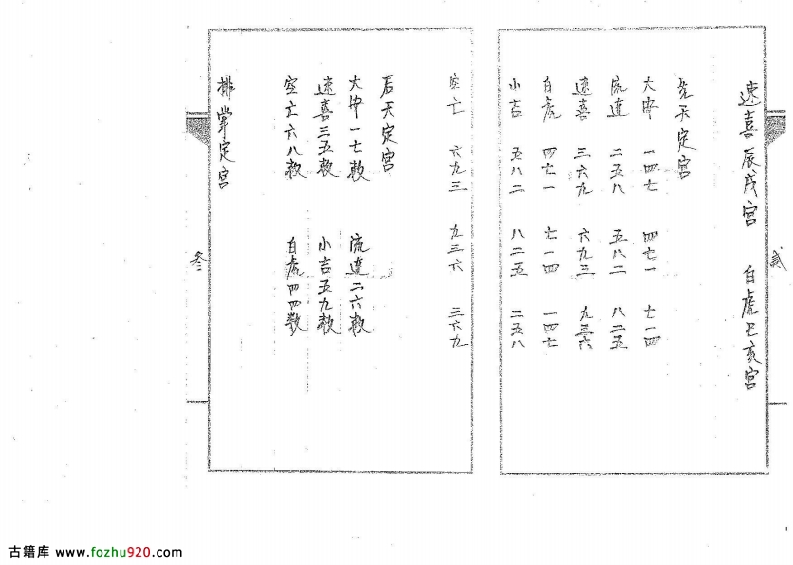 速喜辰戌宫　白虎巳亥宫
先天定宫
大安　一四七　四七一　七一四
流连　二五八　五八二　八二五
速喜　三六九　六九三　九三六
白虎　四七一　七一四　一四七
小吉　五八二　八二五　二五八
贰
空亡　六九三　九三六　三六九
后天定宫
大安一七数　流连二六数
速喜三五数　小吉五九数
空亡六八数　白虎四四数
排掌定宫
叁
古籍库 www.fozhu920.com